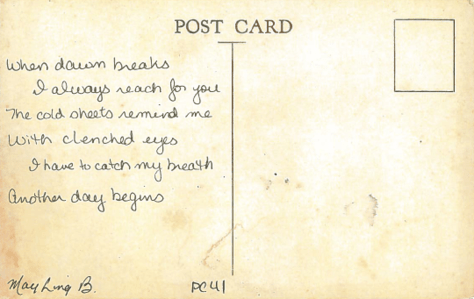 POST CARD
When dawn breaks
I always reach for you
The cold sheets remind me
With clenched eyes
I have to catch my breath
Another day begins
May Ling B.
PC41